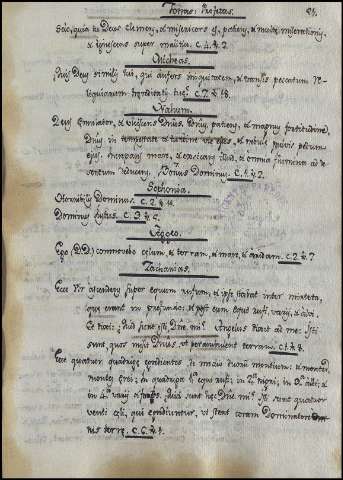 Jonas: Profetas. 21.
Scio, quia tu Deus clemens, et misericors es, patiens, et multæ miserationis,
et ignoscens super malitia. C. 4. v. 2.
Micheas.
Quis Deus similis tui, qui aufers iniquitatem, et transis peccatum Re-
liquiarum hæreditatis tuæ. C. 7. v. 18.
Nahum.
Deus Emulator, et Ulciscens Dñus. Dñus patiens, et magnus fortitudine.
Dñus in tempestate et turbine viæ ejus, et nebulæ pulvis pedum
ejus, increpans mare, et exsiccans illud, et omnia flumina ad de-
sertum deducens. Bonus Dominus. C. 1. v. 2.
Sophonia.
Horribilis Dominus. C. 2. v. 11.
Dominus justus. C. 3. v. 5.
Ageo.
Ego (D.D.) commovebo cælum, et terram, et mare, et aridam. C. 2. v. 7
Zacharias.
Ecce Vir ascendens super equum rufum, et ipse stabat inter mirteta,
quæ erant in profundo; et post eum equi rufi, varii, et albi.
Et dixi: Quid sunt isti Dne mi? Angelus dixit ad me: Isti
sunt, quos misit Dñus, ut perambulent terram. C. 1. v. 8.
Ecce quatuor quadrigæ egredientes de medio duorum montium; et montes,
montes ærei; in quadriga 1ª equi rufi; in 2ª nigri; in 3ª albi; et
in 4ª varii et fortes. Quid sunt hæc Dne mi? Isti sunt quatuor
venti cæli, qui egrediuntur, ut stent coram Dominatore
nis terræ. C. 6. v. 1.